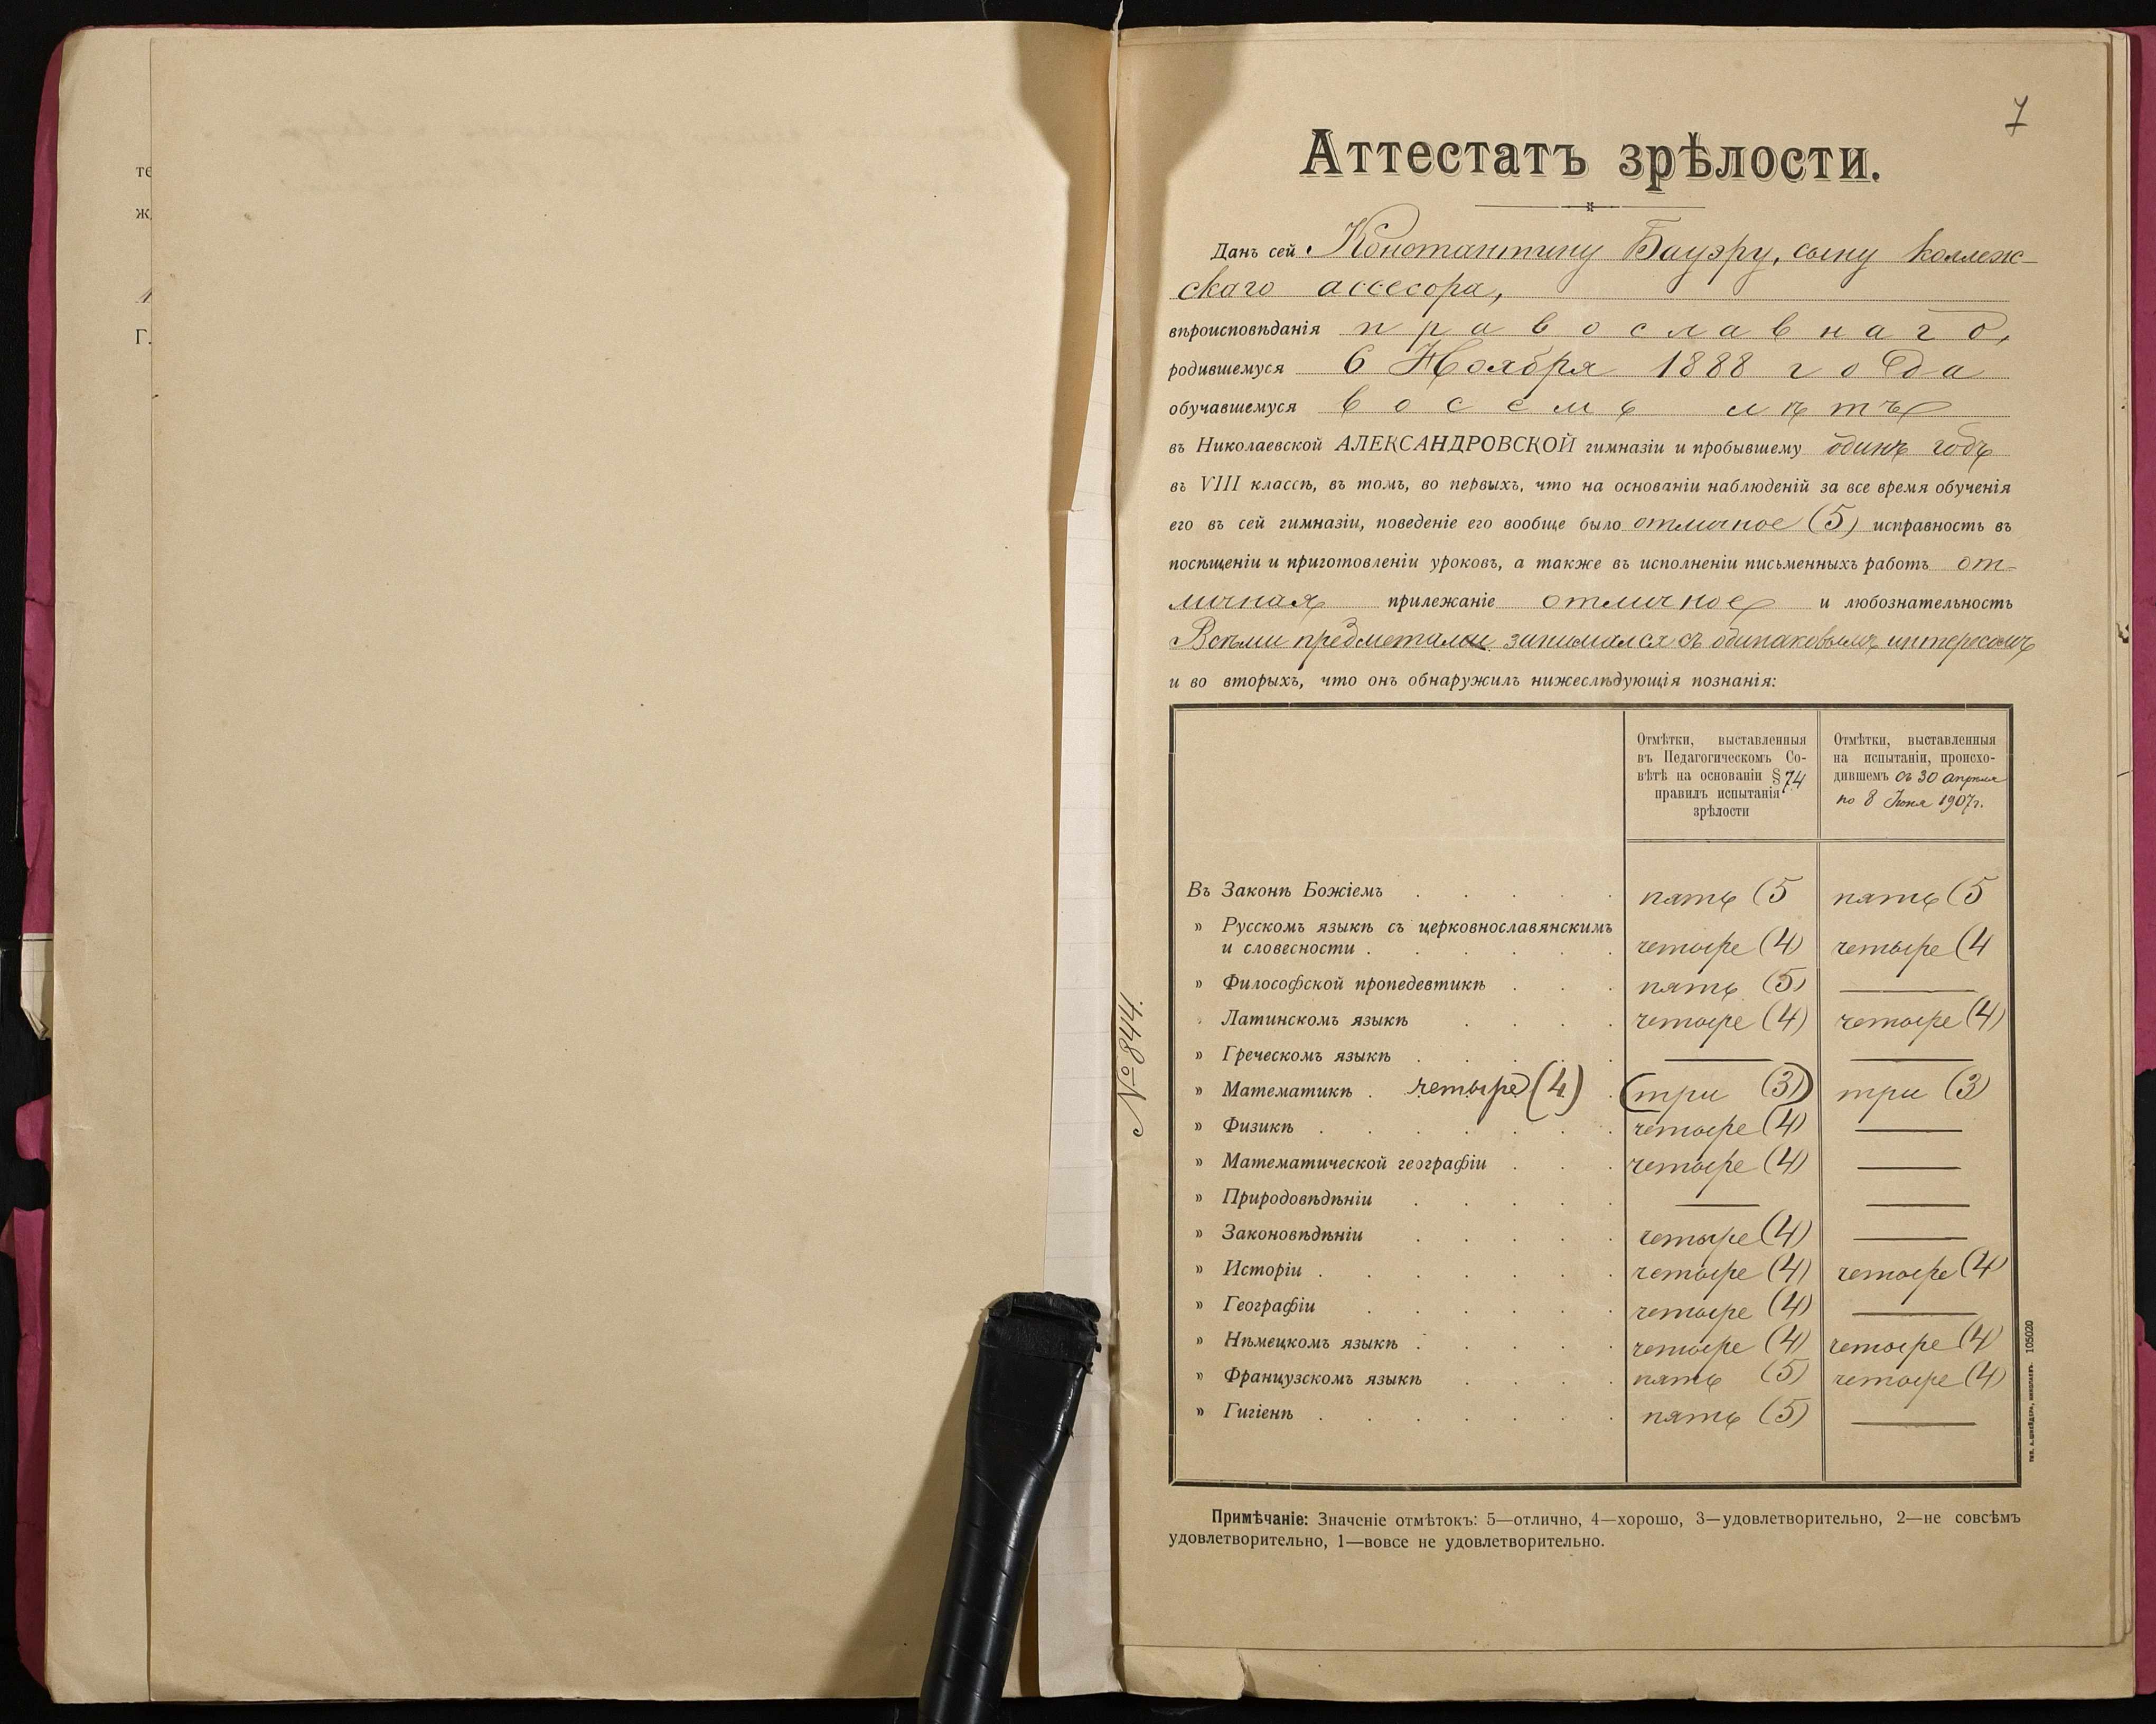 те
ж
Г.
7
Аттестатъ зрѣлости.
Данъ сей Константину Бауэру, сыну коллеж-
скаго ассесора,
вѣроисповѣданія православнаго,
родившемуся 6 Ноября 1888 года
обучавшемуся восемь лѣтъ
въ Николаевской АЛЕКСАНДРОВСКОЙ гимназіи и пробывшему одинъ годъ
въ VIII классѣ, въ томъ, во первыхъ, что на основаніи наблюденій за все время обученія
его въ сей гимназіи, поведеніе его вообще было отличное (5) исправность въ
посѣщеніи и приготовленіи уроковъ, а также въ исполненіи письменныхъ работъ от-
личная прилежаніе отличное и любознательность
Всѣми предметами занимался съ одинаковымъ интересомъ
и во вторыхъ, что онъ обнаружилъ нижеслѣдующія познанія:
Отмѣтки, выставленныя
въ Педагогическомъ Со-
вѣтѣ на основаніи § 74
правилъ испытанія
зрѣлости
Отмѣтки, выставленныя
на испытаніи, происхо-
дившемъ съ 30 апрѣля
по 8 Июня 1907 г.
Въ Законѣ Божіемъ . . . . . пять (5 пять (5
» Русскомъ языкѣ съ церковнославянскимъ
и словесности . . . . . . четыре (4) четыре (4
» Философской пропедевтикѣ . . . пять (5) —
Латинскомъ языкѣ . . . . четыре (4) четыре (4)
» Греческомъ языкѣ . . . . . — —
» Математикѣ . четыре (4) . (три (3)) три (3)
» Физикѣ . . . . . . . четыре (4) —
» Математической географіи . . . четыре (4) —
» Природовѣдѣніи . . . . . — —
» Законовѣдѣніи . . . . . четыре (4) —
» Исторіи . . . . . . . четыре (4) четыре (4)
» Географіи . . . . . . четыре (4) —
» Нѣмецкомъ языкѣ . . . . . четыре (4) четыре (4)
» Французскомъ языкѣ . . . . пять (5) четыре (4)
» Гигіенѣ . . . . . . . пять (5) —
№ 844.
Тип. А. Шнейдеръ, Николаевъ. 105020
Примѣчаніе: Значеніе отмѣтокъ: 5—отлично, 4—хорошо, 3—удовлетворительно, 2—не совсѣмъ
удовлетворительно, 1—вовсе не удовлетворительно.